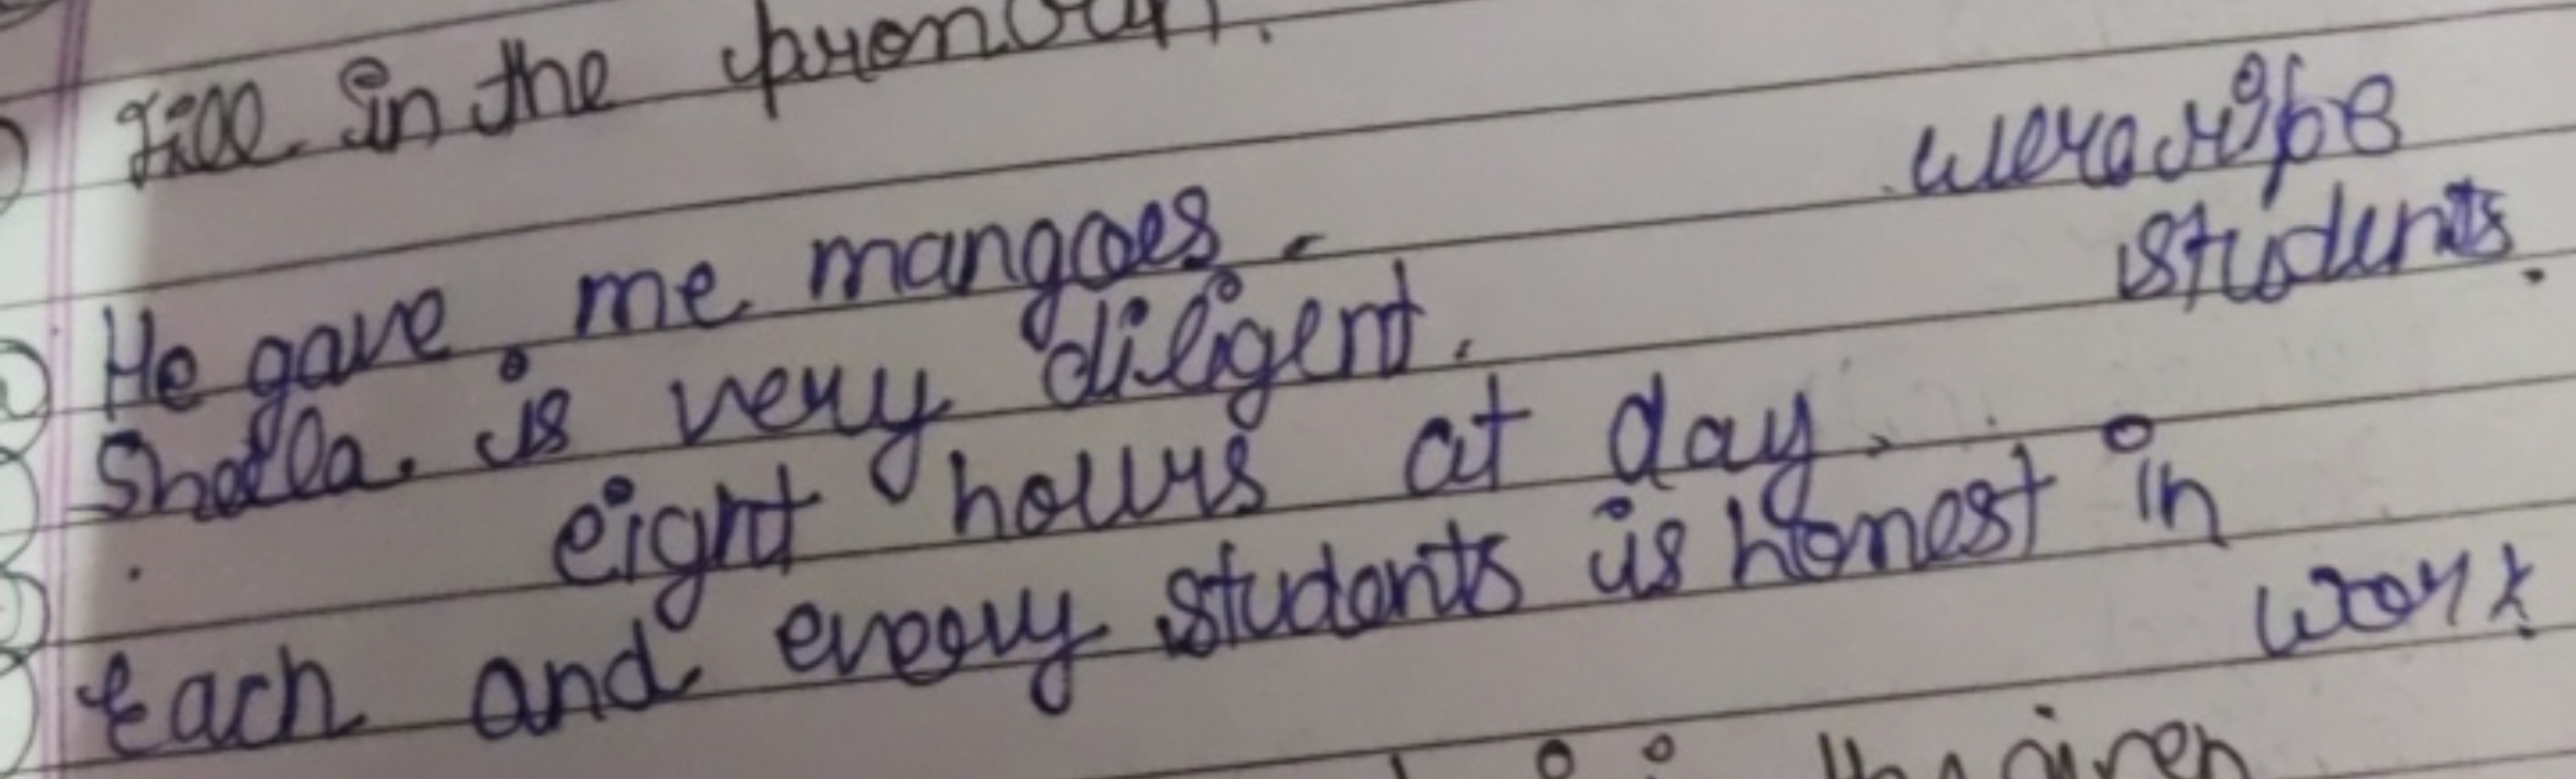 Fill in the pronoun.
He gave me mangoes. were ripe
Sheila. is very diligent. students.
eight hours at day.
Each and every students is honest in
work.